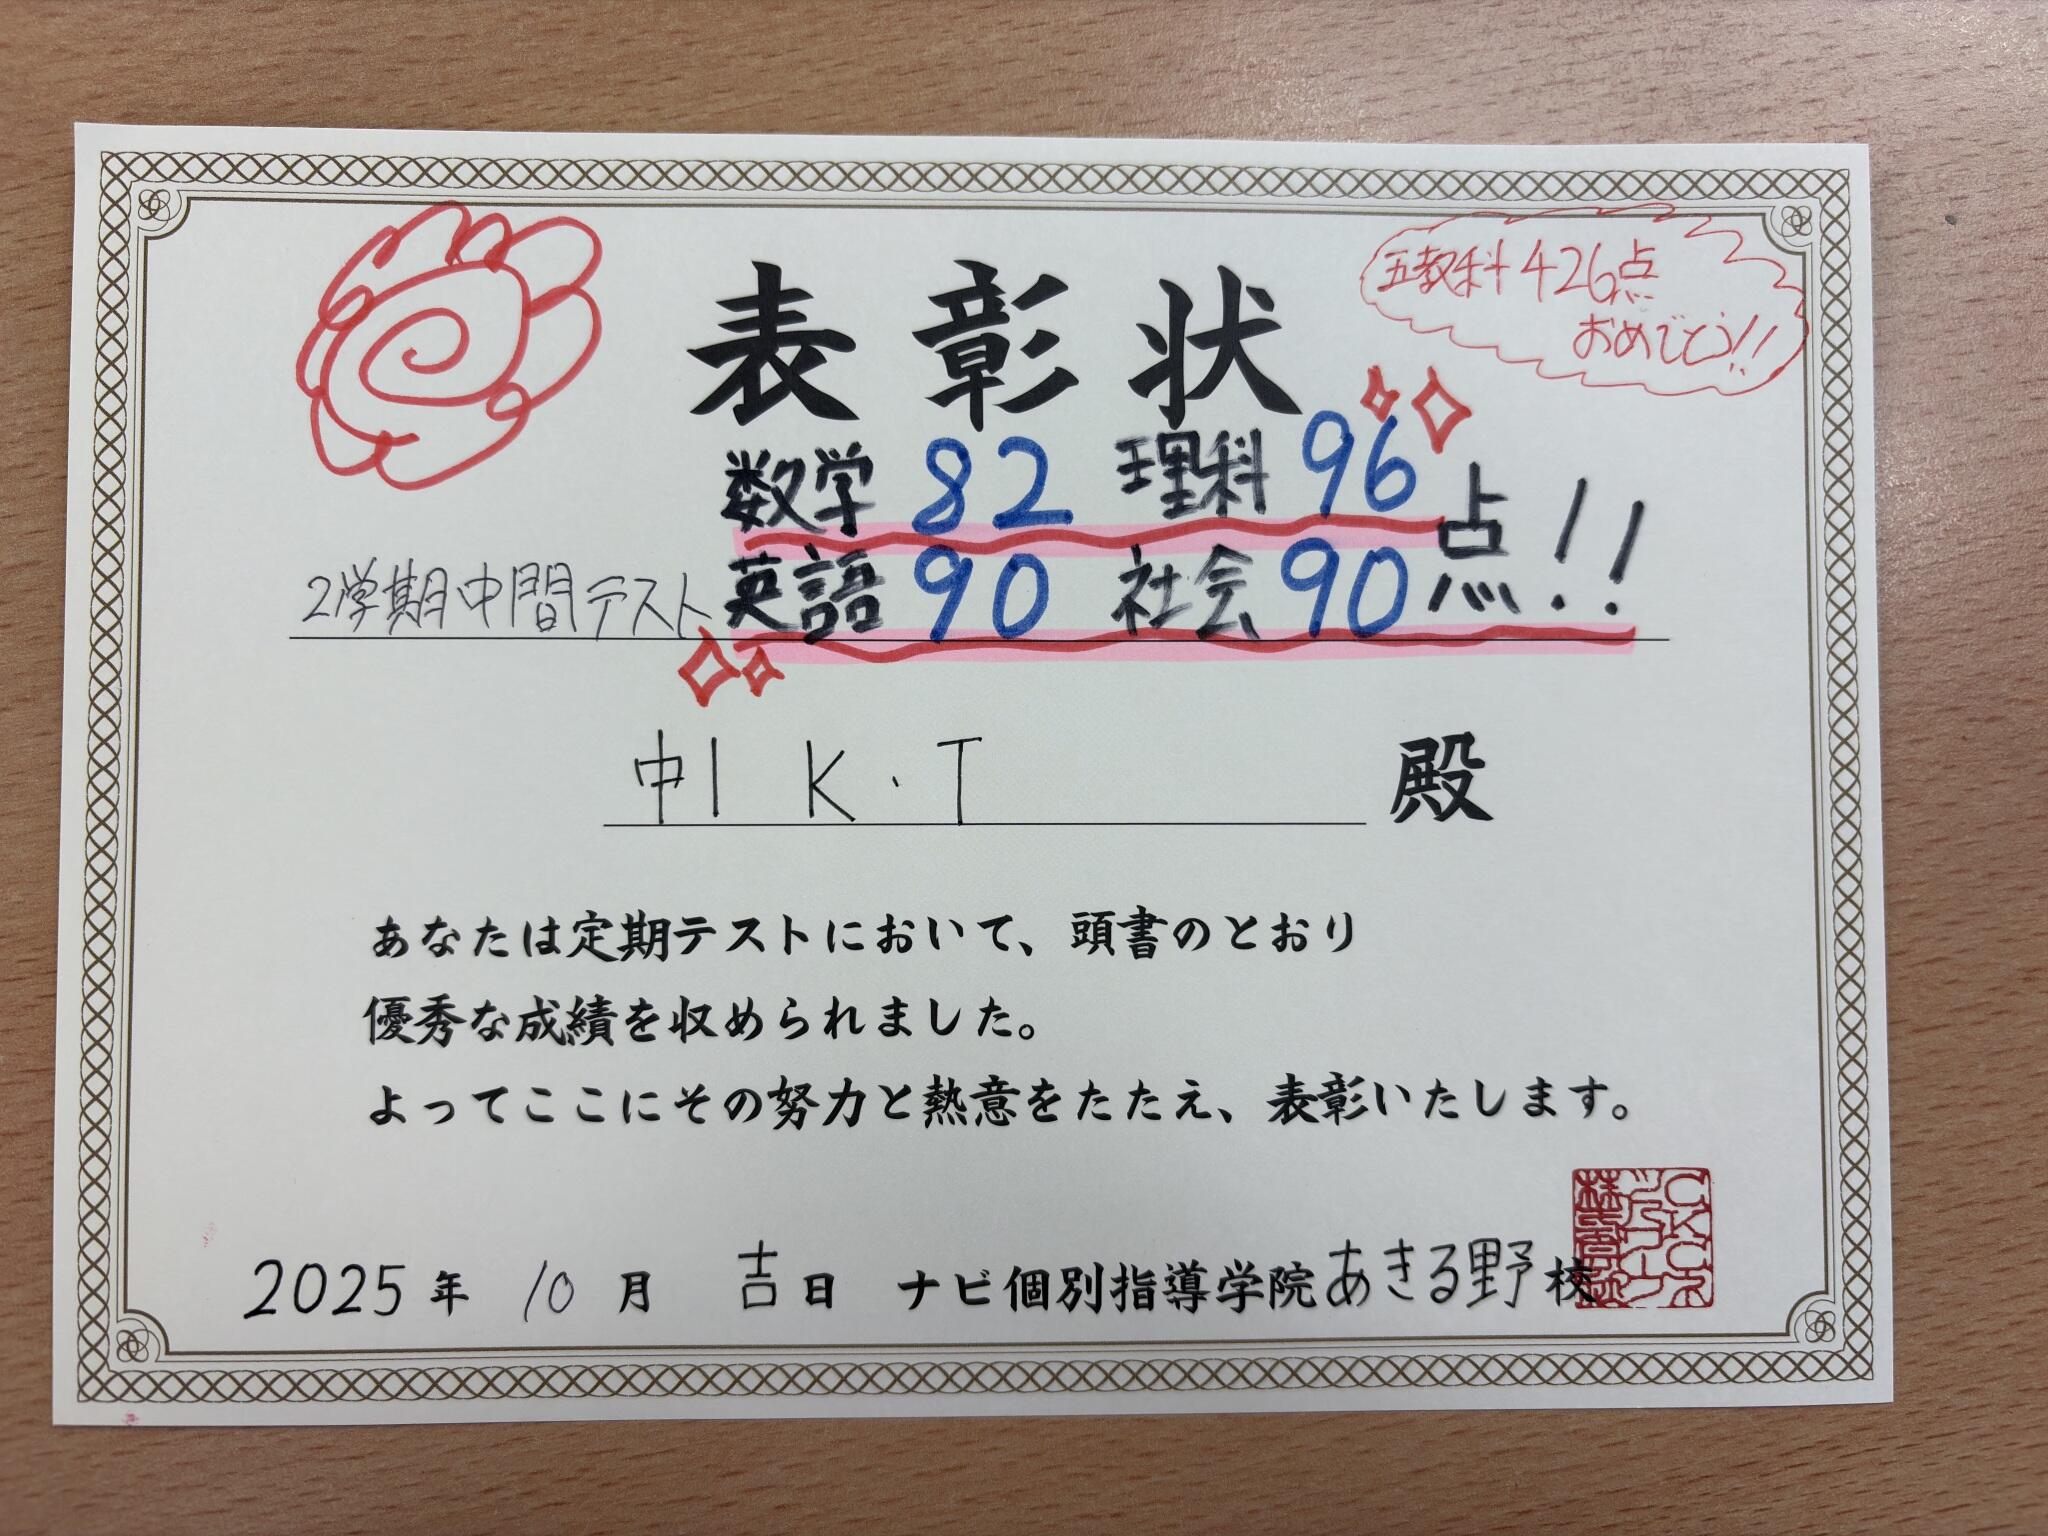 表彰状
五教科426点
おめでとう!!
数学 82 理科 96
2学期中間テスト 英語 90 社会 90 点!!
中1 K・T 殿
あなたは定期テストにおいて、頭書のとおり
優秀な成績を収められました。
よってここにその努力と熱意をたたえ、表彰いたします。
2025年 10月 吉日 ナビ個別指導学院 あきる野校